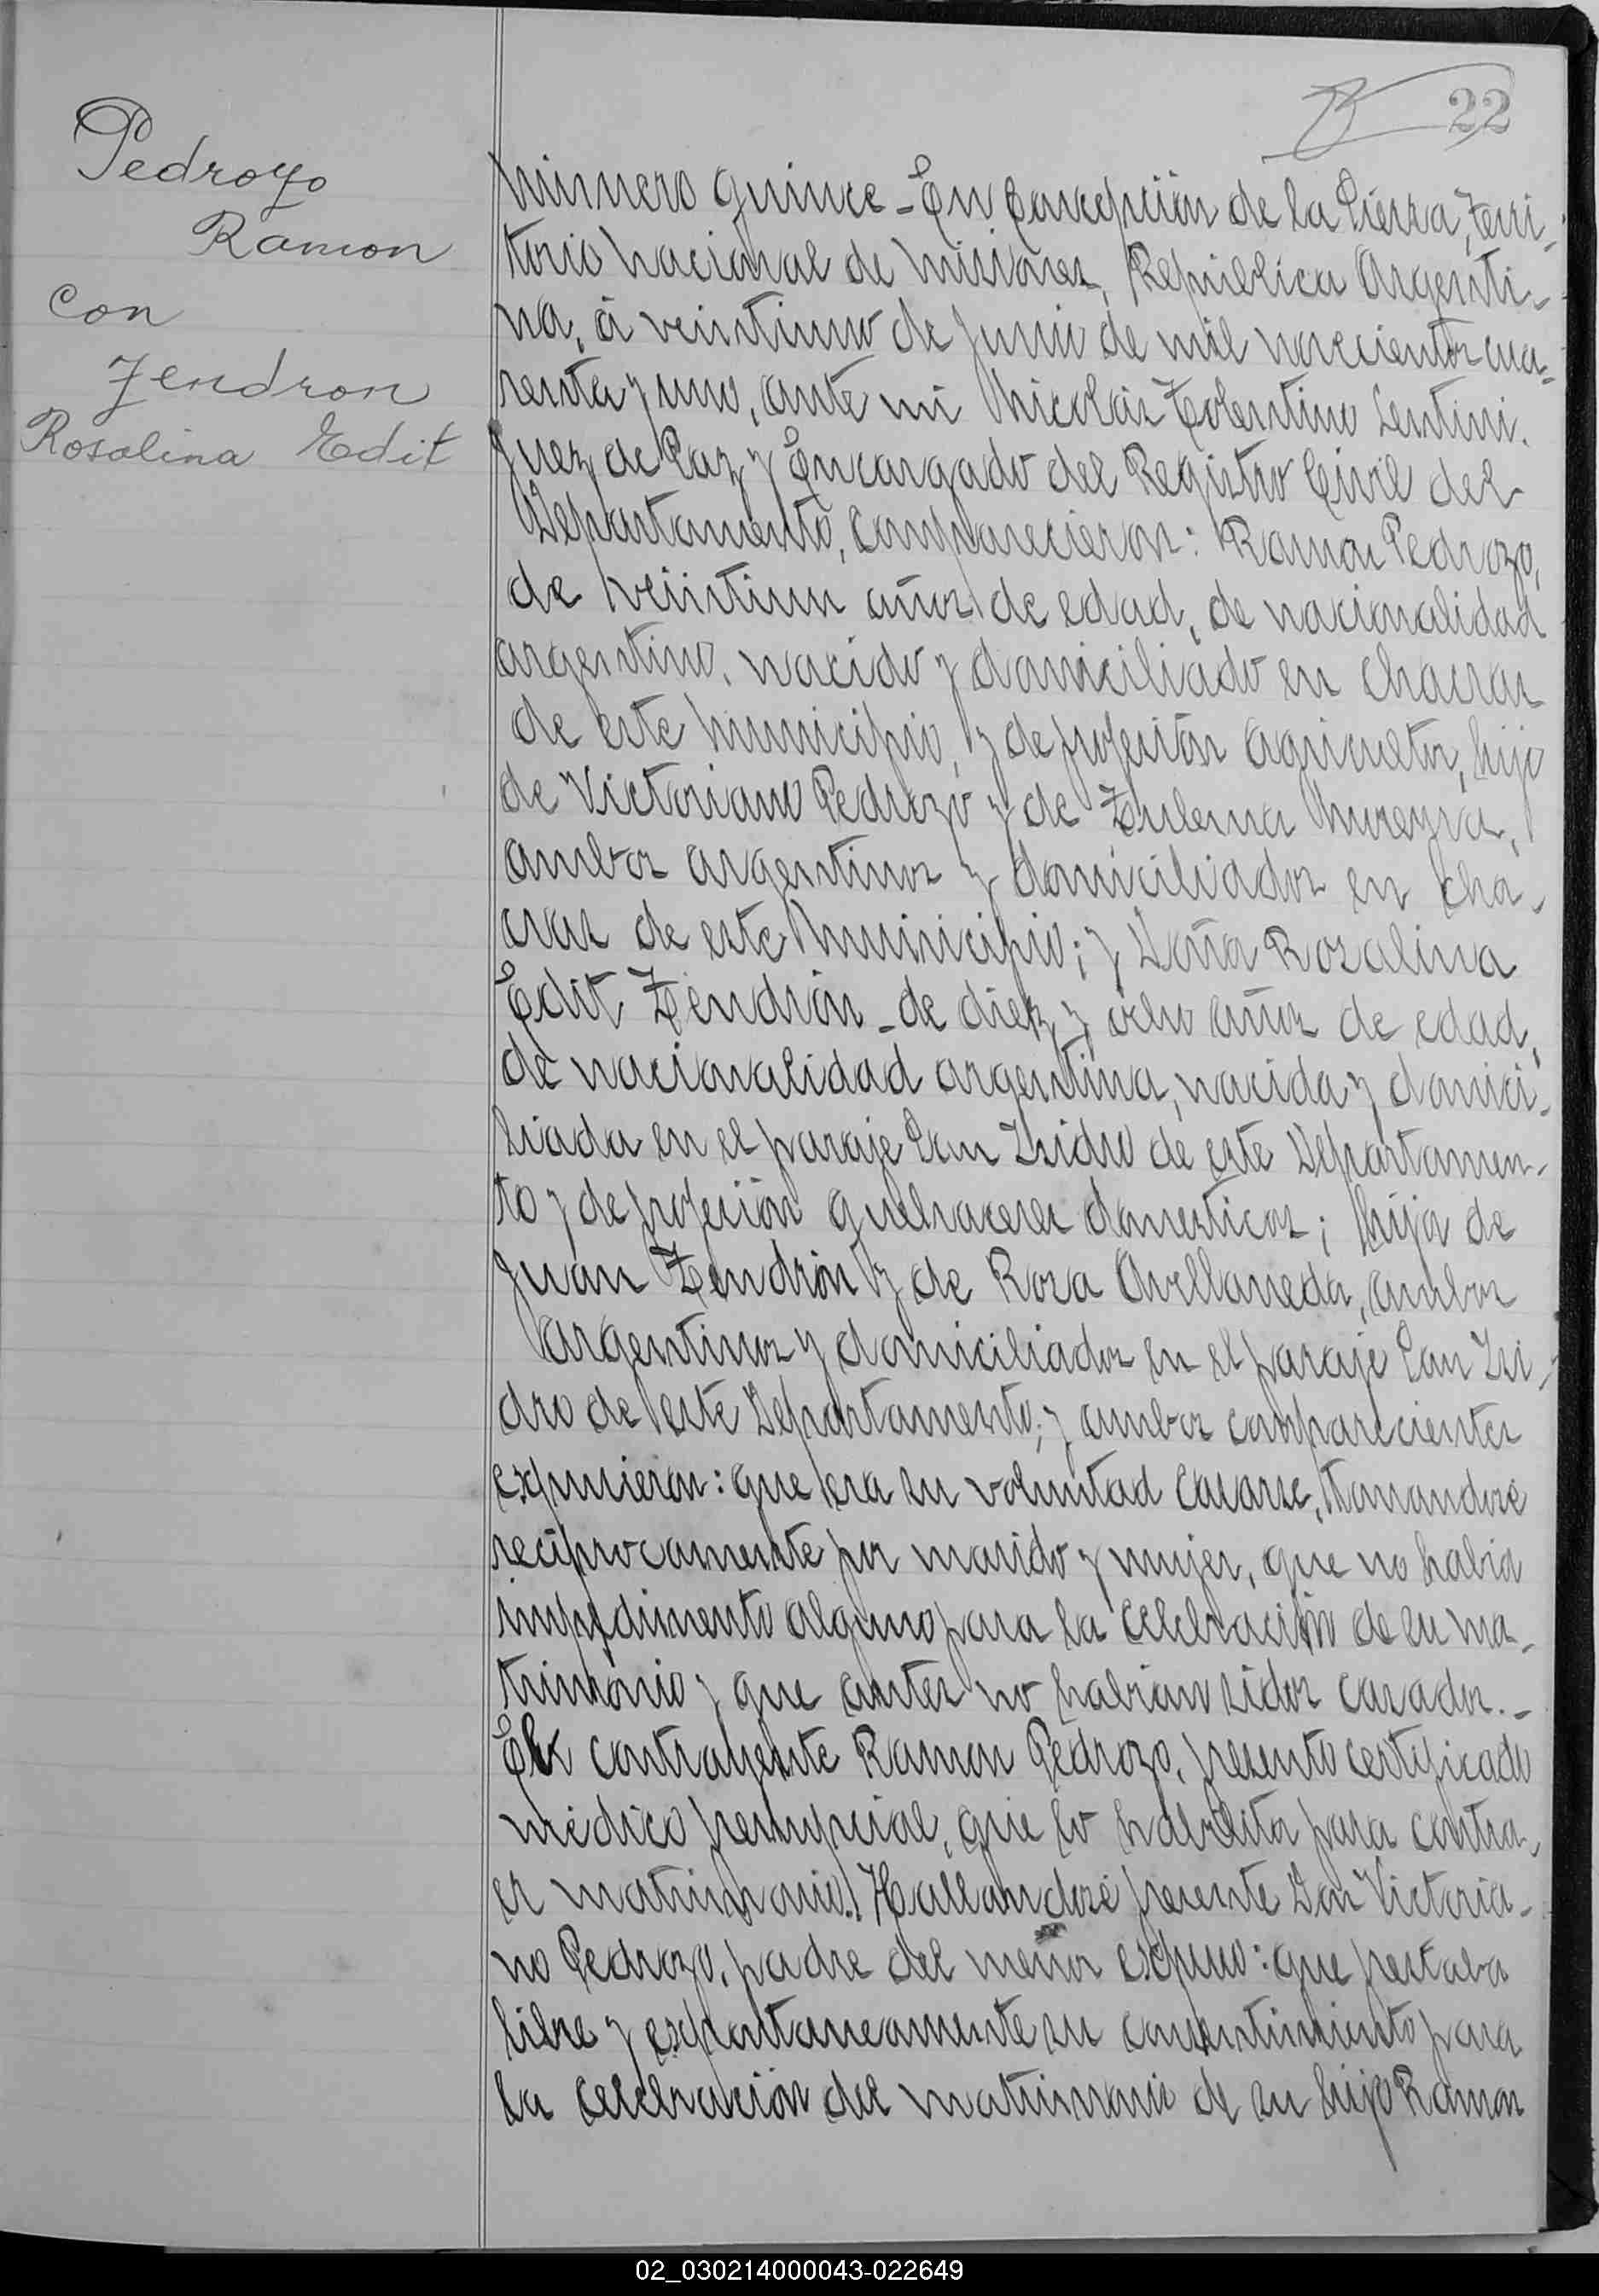 22
Pedrozo
Ramon
con
Zendron
Rosalina Edit
Número quince - En Concepción de la Sierra, Terri-
torio Nacional de Misiones, República Argenti-
na, á veintiuno de Junio de mil novecientos cua-
renta y uno, ante mi Nicolás Tolentino Sentini.
Juez de Paz y Encargado del Registro Civil del
Departamento, comparecieron: Ramon Pedrozo,
de veintiun años de edad, de nacionalidad
argentino, nacido y domiciliado en chacras
de este Municipio, y de profesión agricultor, hijo
de Victoriano Pedrozo y de Zulema Moreyra,
ambos argentinos y domiciliados en cha-
cras de este Municipio; y Doña Rosalina
Edit Zendrón - de diez y ocho años de edad,
de nacionalidad argentina, nacida y domici-
liada en el paraje San Isidro de este Departamen-
to y de profesión quehaceres domesticos; hija de
Juan Zendrón y de Rosa Avellaneda, ambos
argentinos y domiciliados en el paraje San Isi-
dro de este Departamento; y ambos comparecientes
expusieron: que era su voluntad casarse, tomandose
reciprocamente por marido y mujer, que no habia
impedimento alguno para la celebración de su ma-
trimonio y que antes no habian sidos casados.-
El contrayente Ramon Pedrozo, presento certificado
médico prenupcial, que lo habilita para contra-
er matrimonio. Hallandose presente Don Victoria-
no Pedrozo, padre del menor expuso: que prestaba
libre y espontaneamente su consentimiento para
la celebración del matrimonio de su hijo Ramon
02_030214000043-022649